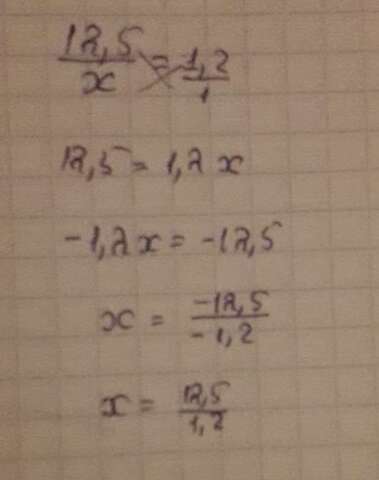 12,5/x = 1,2/1
12,5 = 1,2 x
-1,2 x = -12,5
x = -12,5/-1,2
x = 12,5/1,2